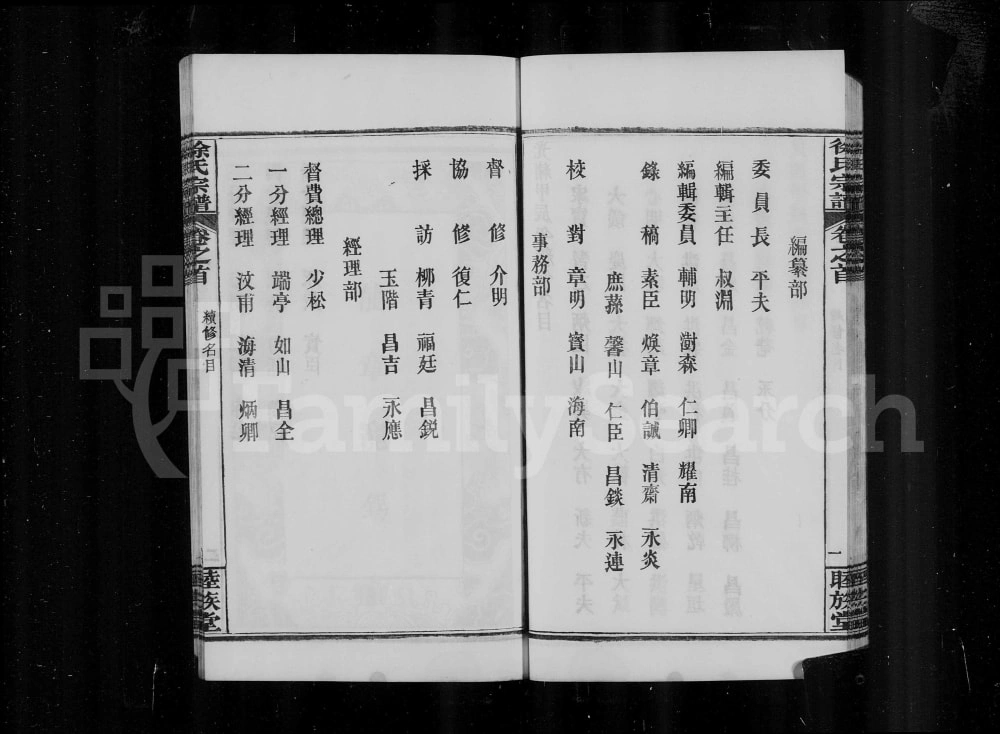 徐氏宗譜
卷之首
一
睦族堂
編纂部
委員長 平夫
編輯主任 叔淵
編輯委員 輔明 澍森 仁卿 耀南
錄稿 素臣 煥章 伯誠 清齋 永炎
庶蓀 馨山 仁臣 昌錟 永連
校對 章明 賓山 海南
事務部
督修 介明
協修 復仁
採訪 柳青 福廷 昌銳
玉階 昌吉 永應
經理部
督費總理 少松
一分經理 端亭 如山 昌全
二分經理 汶甫 海清 炳卿
徐氏宗譜
卷之首
續修名目
二
睦族堂
FamilySearch